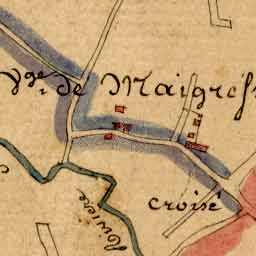 de Maigres
croisé
Riviere